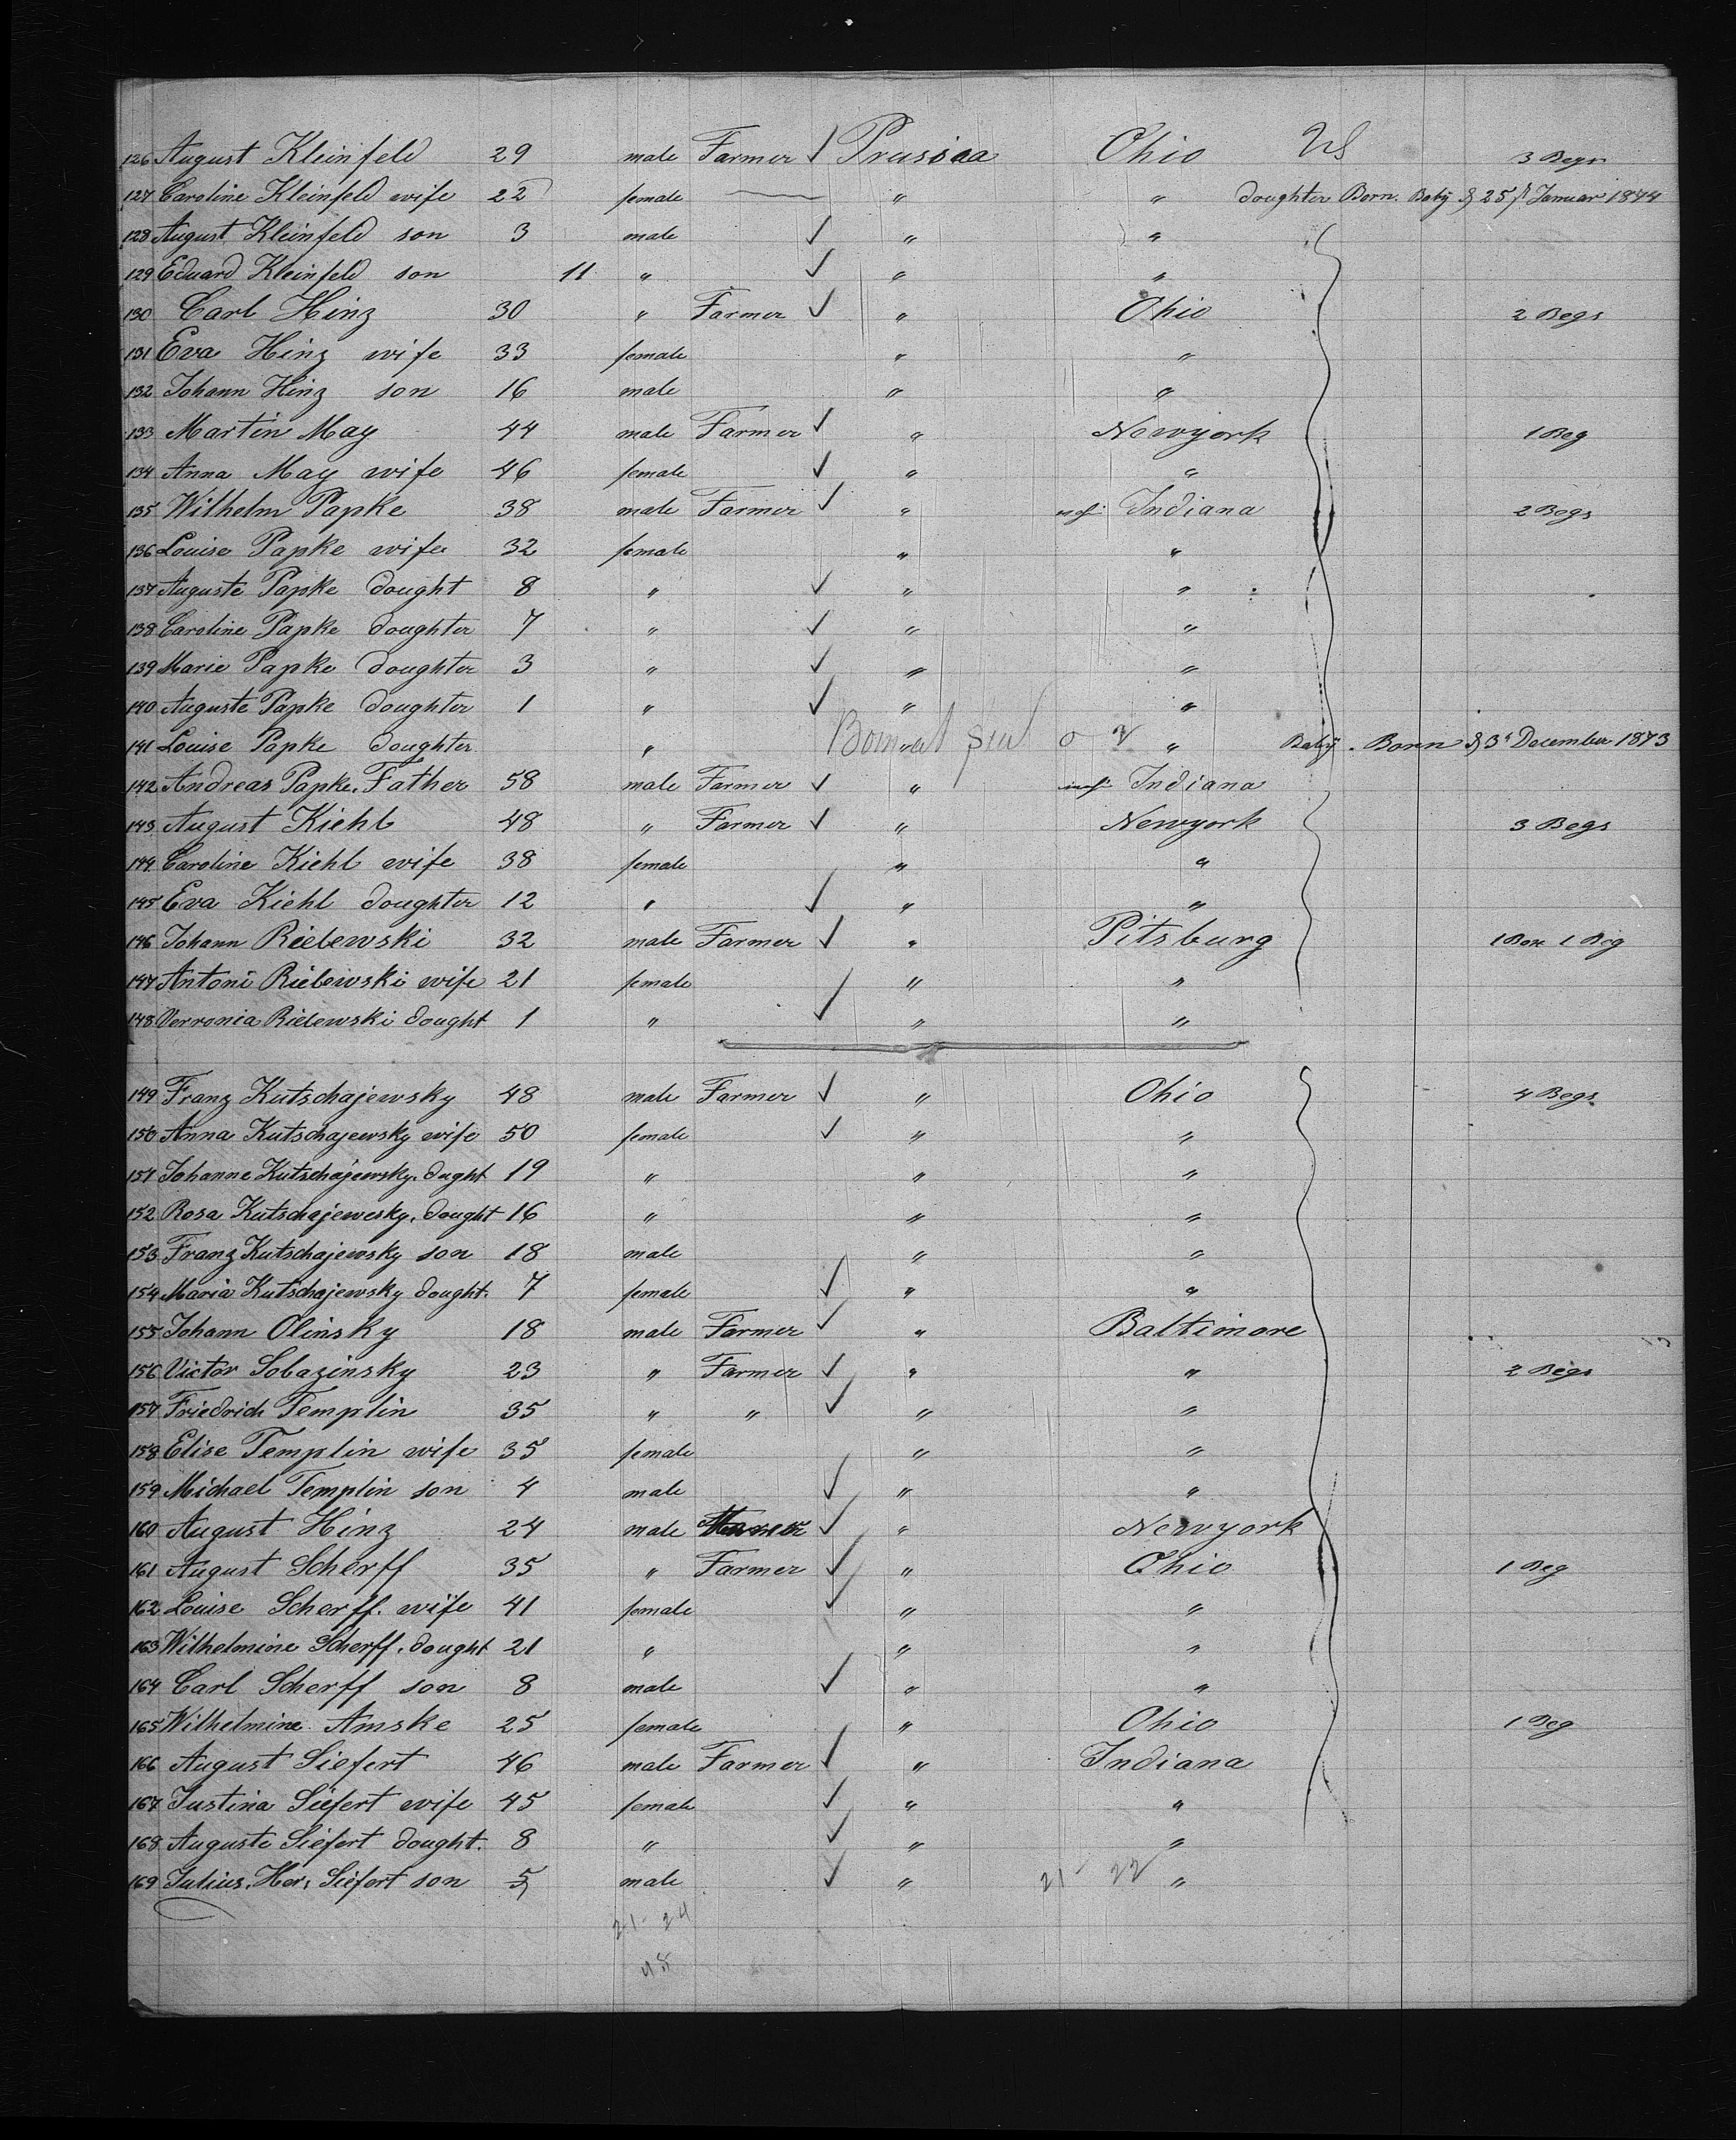 126 August Kleinfeld 29 male Farmer ✓ Prussia Ohio US 3 Begs
127 Caroline Kleinfeld wife 22 female — " " doughter Born. Baby 25 Januar 1874
128 August Kleinfeld son 3 male ✓ " "
129 Eduard Kleinfeld son 11 " ✓ " "
130 Carl Hinz 30 " Farmer ✓ " Ohio 2 Begs
131 Eva Hinz wife 33 female " "
132 Johann Hinz son 16 male " "
133 Martin May 44 male Farmer ✓ " Newyork 1 Beg
134 Anna May wife 46 female ✓ " "
135 Wilhelm Papke 38 male Farmer ✓ " Indiana 2 Begs
136 Louise Papke wife 32 female " "
137 Auguste Papke dought 8 " ✓ " "
138 Caroline Papke doughter 7 " ✓ " "
139 Marie Papke doughter 3 " ✓ " "
140 Auguste Papke doughter 1 " ✓ " "
141 Louise Papke doughter " Born at sea " Baby. Born 3 December 1873
142 Andreas Papke. Father 58 male Farmer ✓ " Indiana
143 August Kiehl 48 " Farmer ✓ " Newyork 3 Begs
144 Caroline Kiehl wife 38 female " "
145 Eva Kiehl doughter 12 " ✓ " "
146 Johann Rielewski 32 male Farmer ✓ " Pitsburg 1 Box 1 Beg
147 Antoni Rielewski wife 21 female ✓ " "
148 Verronia Rielewski dought 1 " ✓ " "
149 Franz Kutschajewsky 48 male Farmer ✓ " Ohio 4 Begs
150 Anna Kutschajewsky wife 50 female ✓ " "
151 Johanne Kutschajewsky. dught 19 " " "
152 Rosa Kutschajewesky. dought 16 " " "
153 Franz Kutschajewsky son 18 male " "
154 Maria Kutschajewsky dought. 7 female ✓ " "
155 Johann Olinsky 18 male Farmer ✓ " Baltimore
156 Victor Sobazinsky 23 " Farmer ✓ " " 2 Begs
157 Friedrich Templin 35 " " ✓ " "
158 Elise Templin wife 35 female " "
159 Michael Templin son 4 male ✓ " "
160 August Hinz 24 male ✓ " Newyork
161 August Scherff 35 " Farmer ✓ " Ohio 1 Beg
162 Louise Scherff. wife 41 female ✓ " "
163 Wilhelmine Scherff. dought 21 " " "
164 Carl Scherff son 8 male ✓ " "
165 Wilhelmine Amske 25 female " Ohio 1 Beg
166 August Siefert 46 male Farmer ✓ " Indiana
167 Justina Siefert wife 45 female ✓ " "
168 Auguste Siefert dought. 8 " ✓ " "
169 Julius. Her. Siefert son 5 male ✓ " 21 22 "
21 - 24